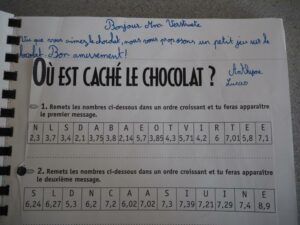 Bonjour Mme
Vu que vous aimez le chocolat, nous vous proposons un petit jeu sur le
chocolat. Bon amusement!
OÙ EST CACHÉ LE CHOCOLAT ?
Lucas
1. Remets les nombres ci-dessous dans un ordre croissant et tu feras apparaître
le premier message.
N L S D A B A E O T V I R T E E
2,3 3,7 2,1 3,75 3,8 2,14 5,7 3,85 4,3 5,71 4,2 6 7,01 5,8 7,1
2. Remets les nombres ci-dessous dans un ordre croissant et tu feras apparaître
le deuxième message.
S L D N C A A S I U I N E
6,24 6,27 5,3 6,2 7,2 6,02 7,02 7,3 7,39 7,21 7,29 7,4 8,9